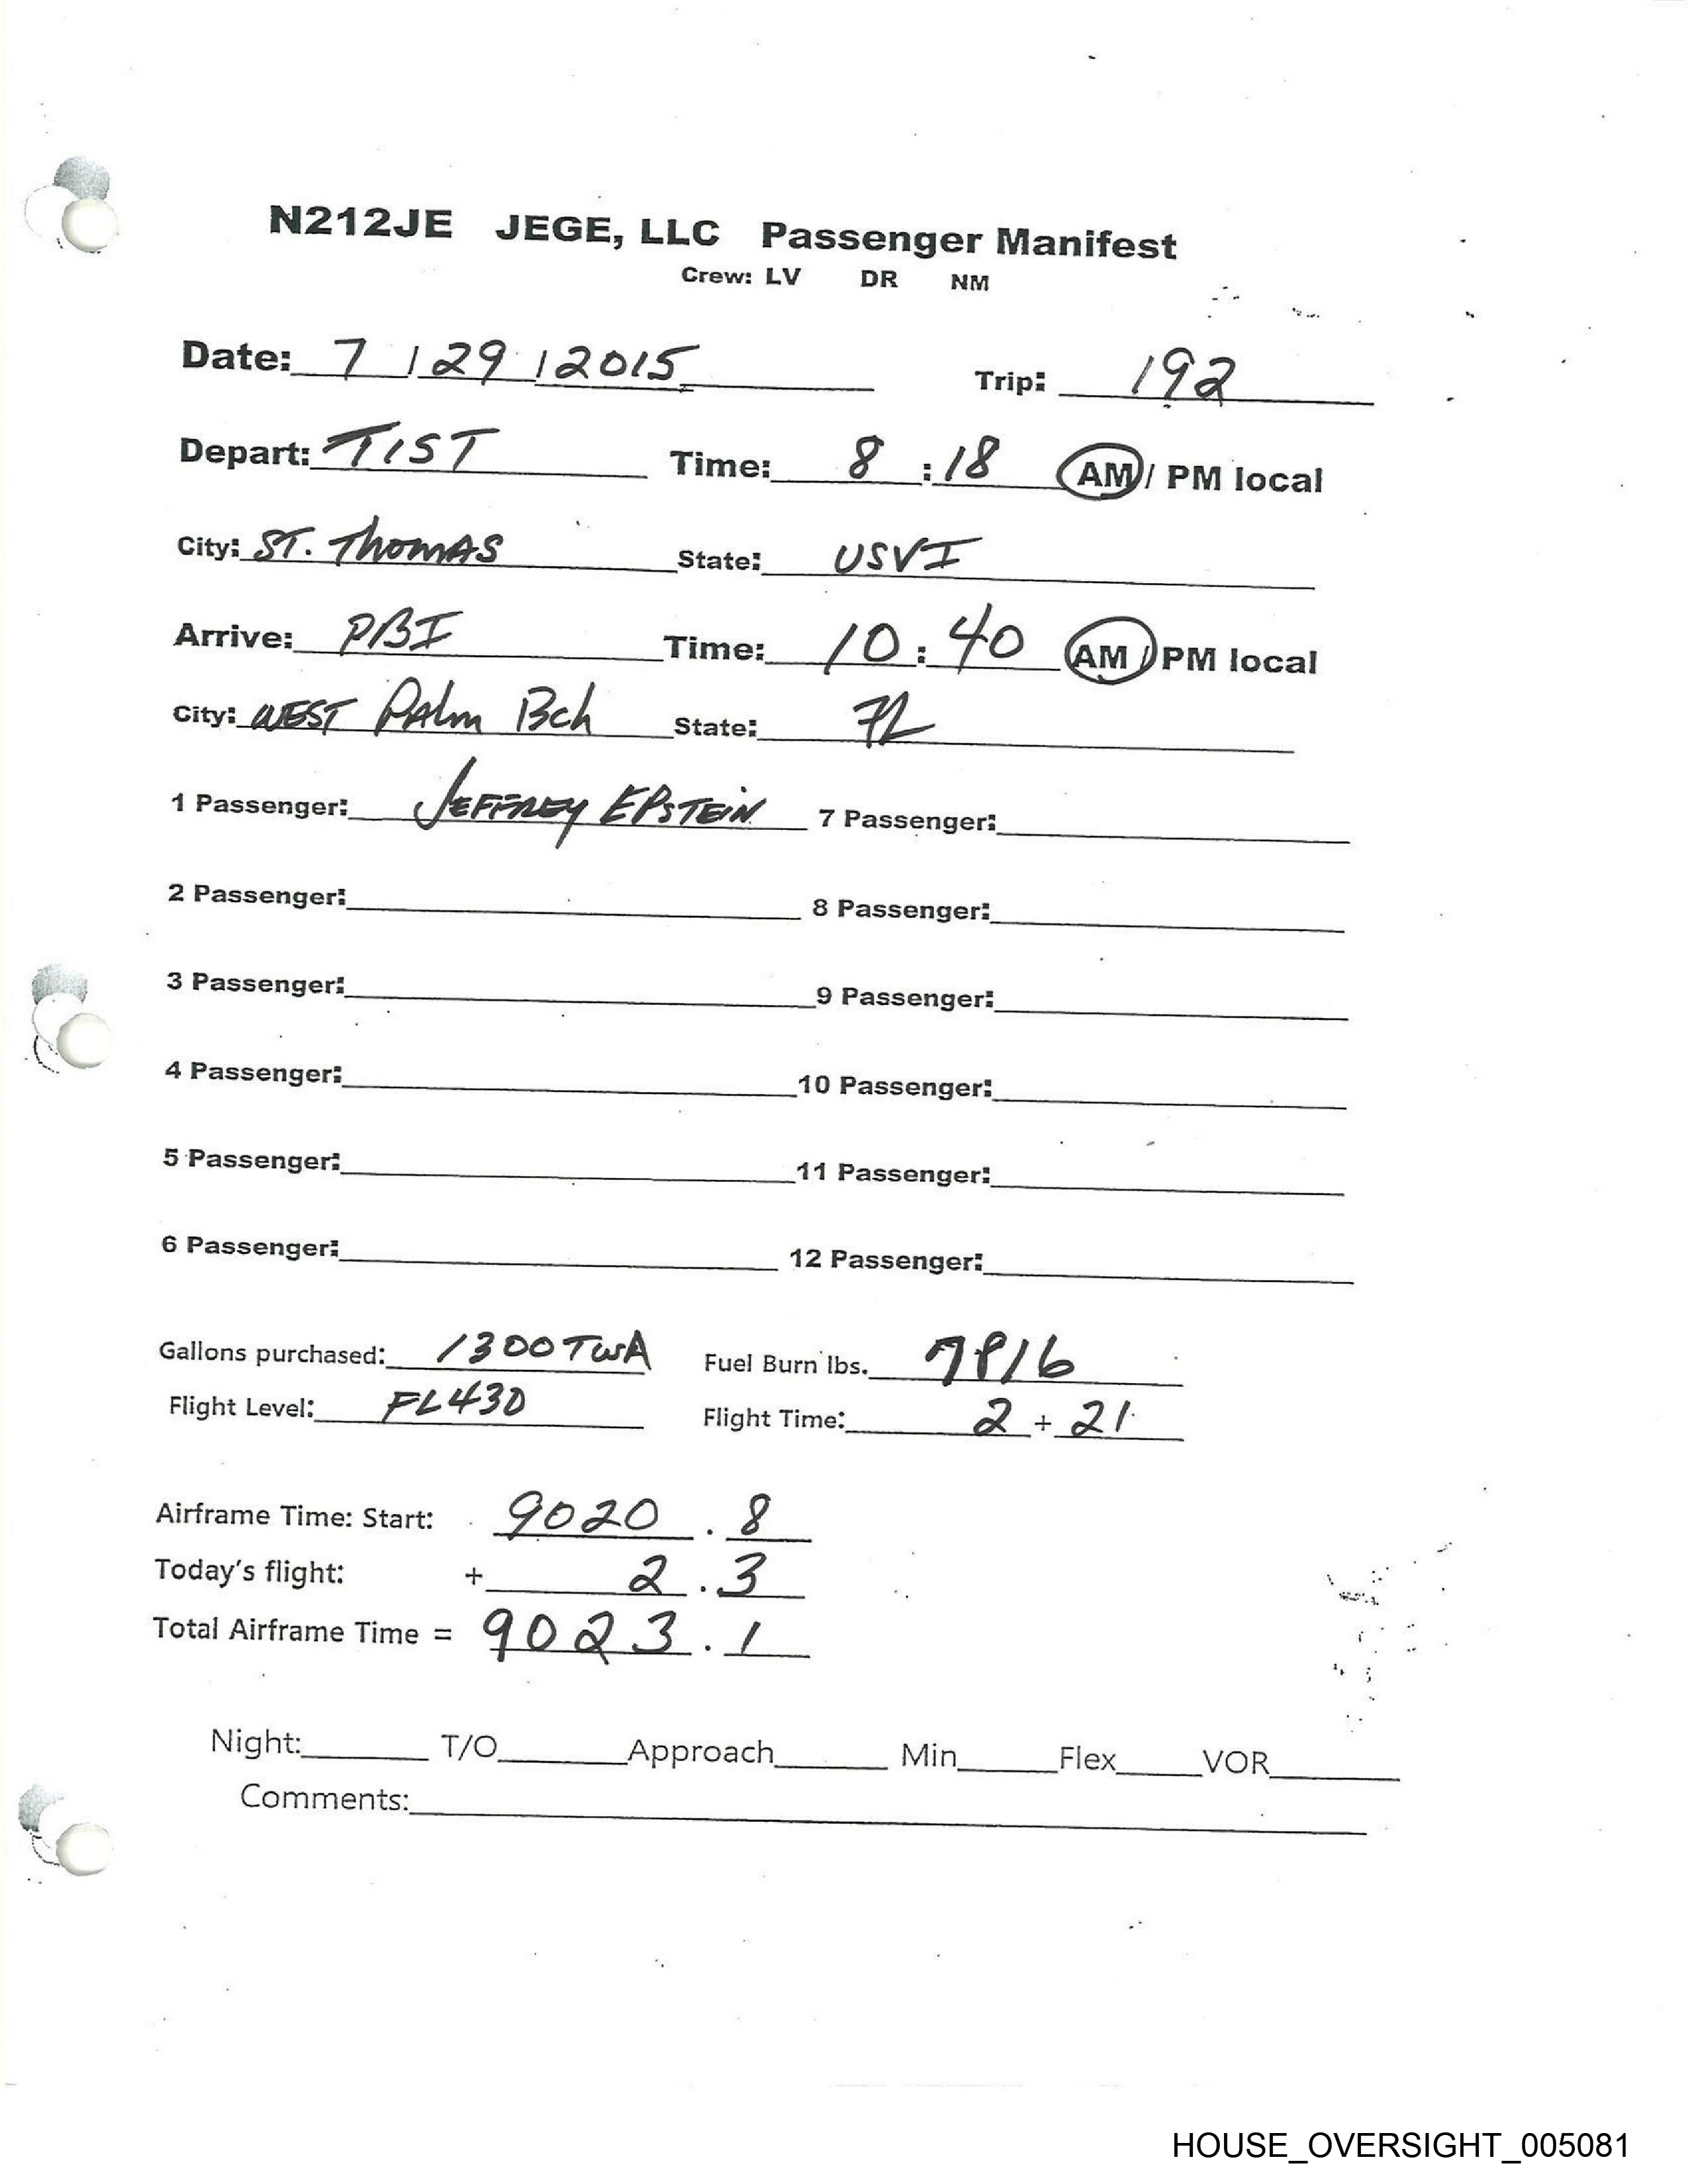 N212JE JEGE, LLC Passenger Manifest
Crew: LV DR NM
Date: 7 / 29 / 2015 Trip: 192
Depart: TIST Time: 8 :18 AM / PM local
City: ST. THOMAS State: USVI
Arrive: PBI Time: 10 : 40 AM / PM local
City: WEST PALM Bch State: FL
1 Passenger: JEFFREY EPSTEIN 7 Passenger:
2 Passenger: 8 Passenger:
3 Passenger: 9 Passenger:
4 Passenger: 10 Passenger:
5 Passenger: 11 Passenger:
6 Passenger: 12 Passenger:
Gallons purchased: 1300 TWA Fuel Burn lbs. 7816
Flight Level: FL430 Flight Time: 2 + 21
Airframe Time: Start: 9020 . 8
Today's flight: + 2 . 3
Total Airframe Time = 9023 . 1
Night: T/O Approach Min Flex VOR
Comments:
HOUSE_OVERSIGHT_005081